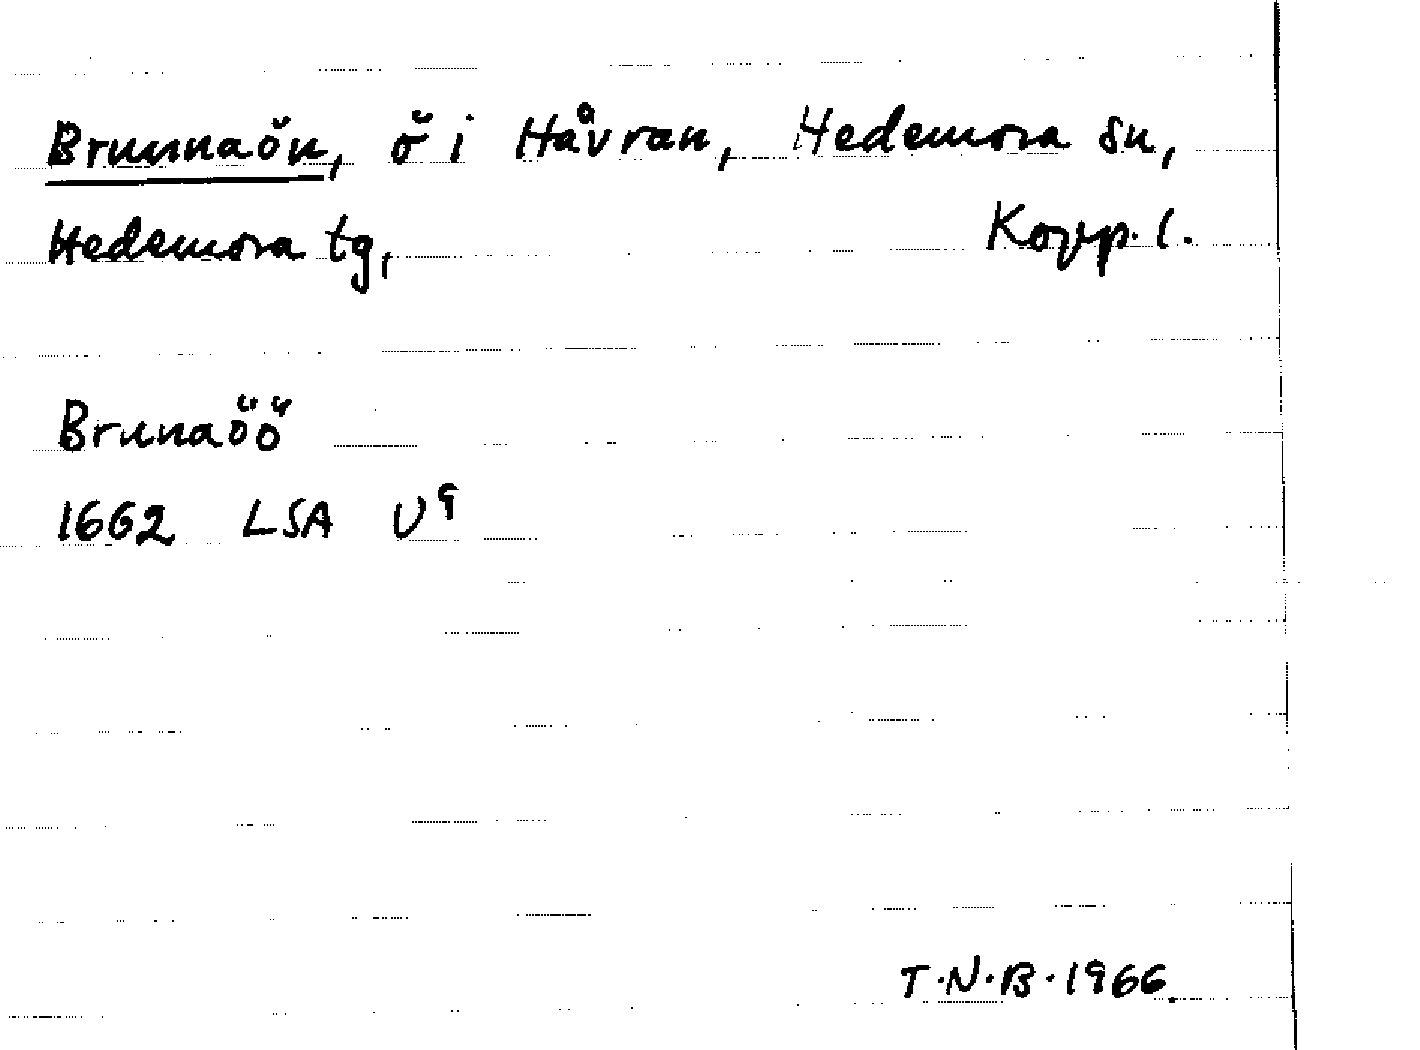 Brunnaön, ö i Håvran, Hedemora sn,
Hedemora tg, Kopp. l.
Brunaöö
1662 LSA U9
T.N.B. 1966.